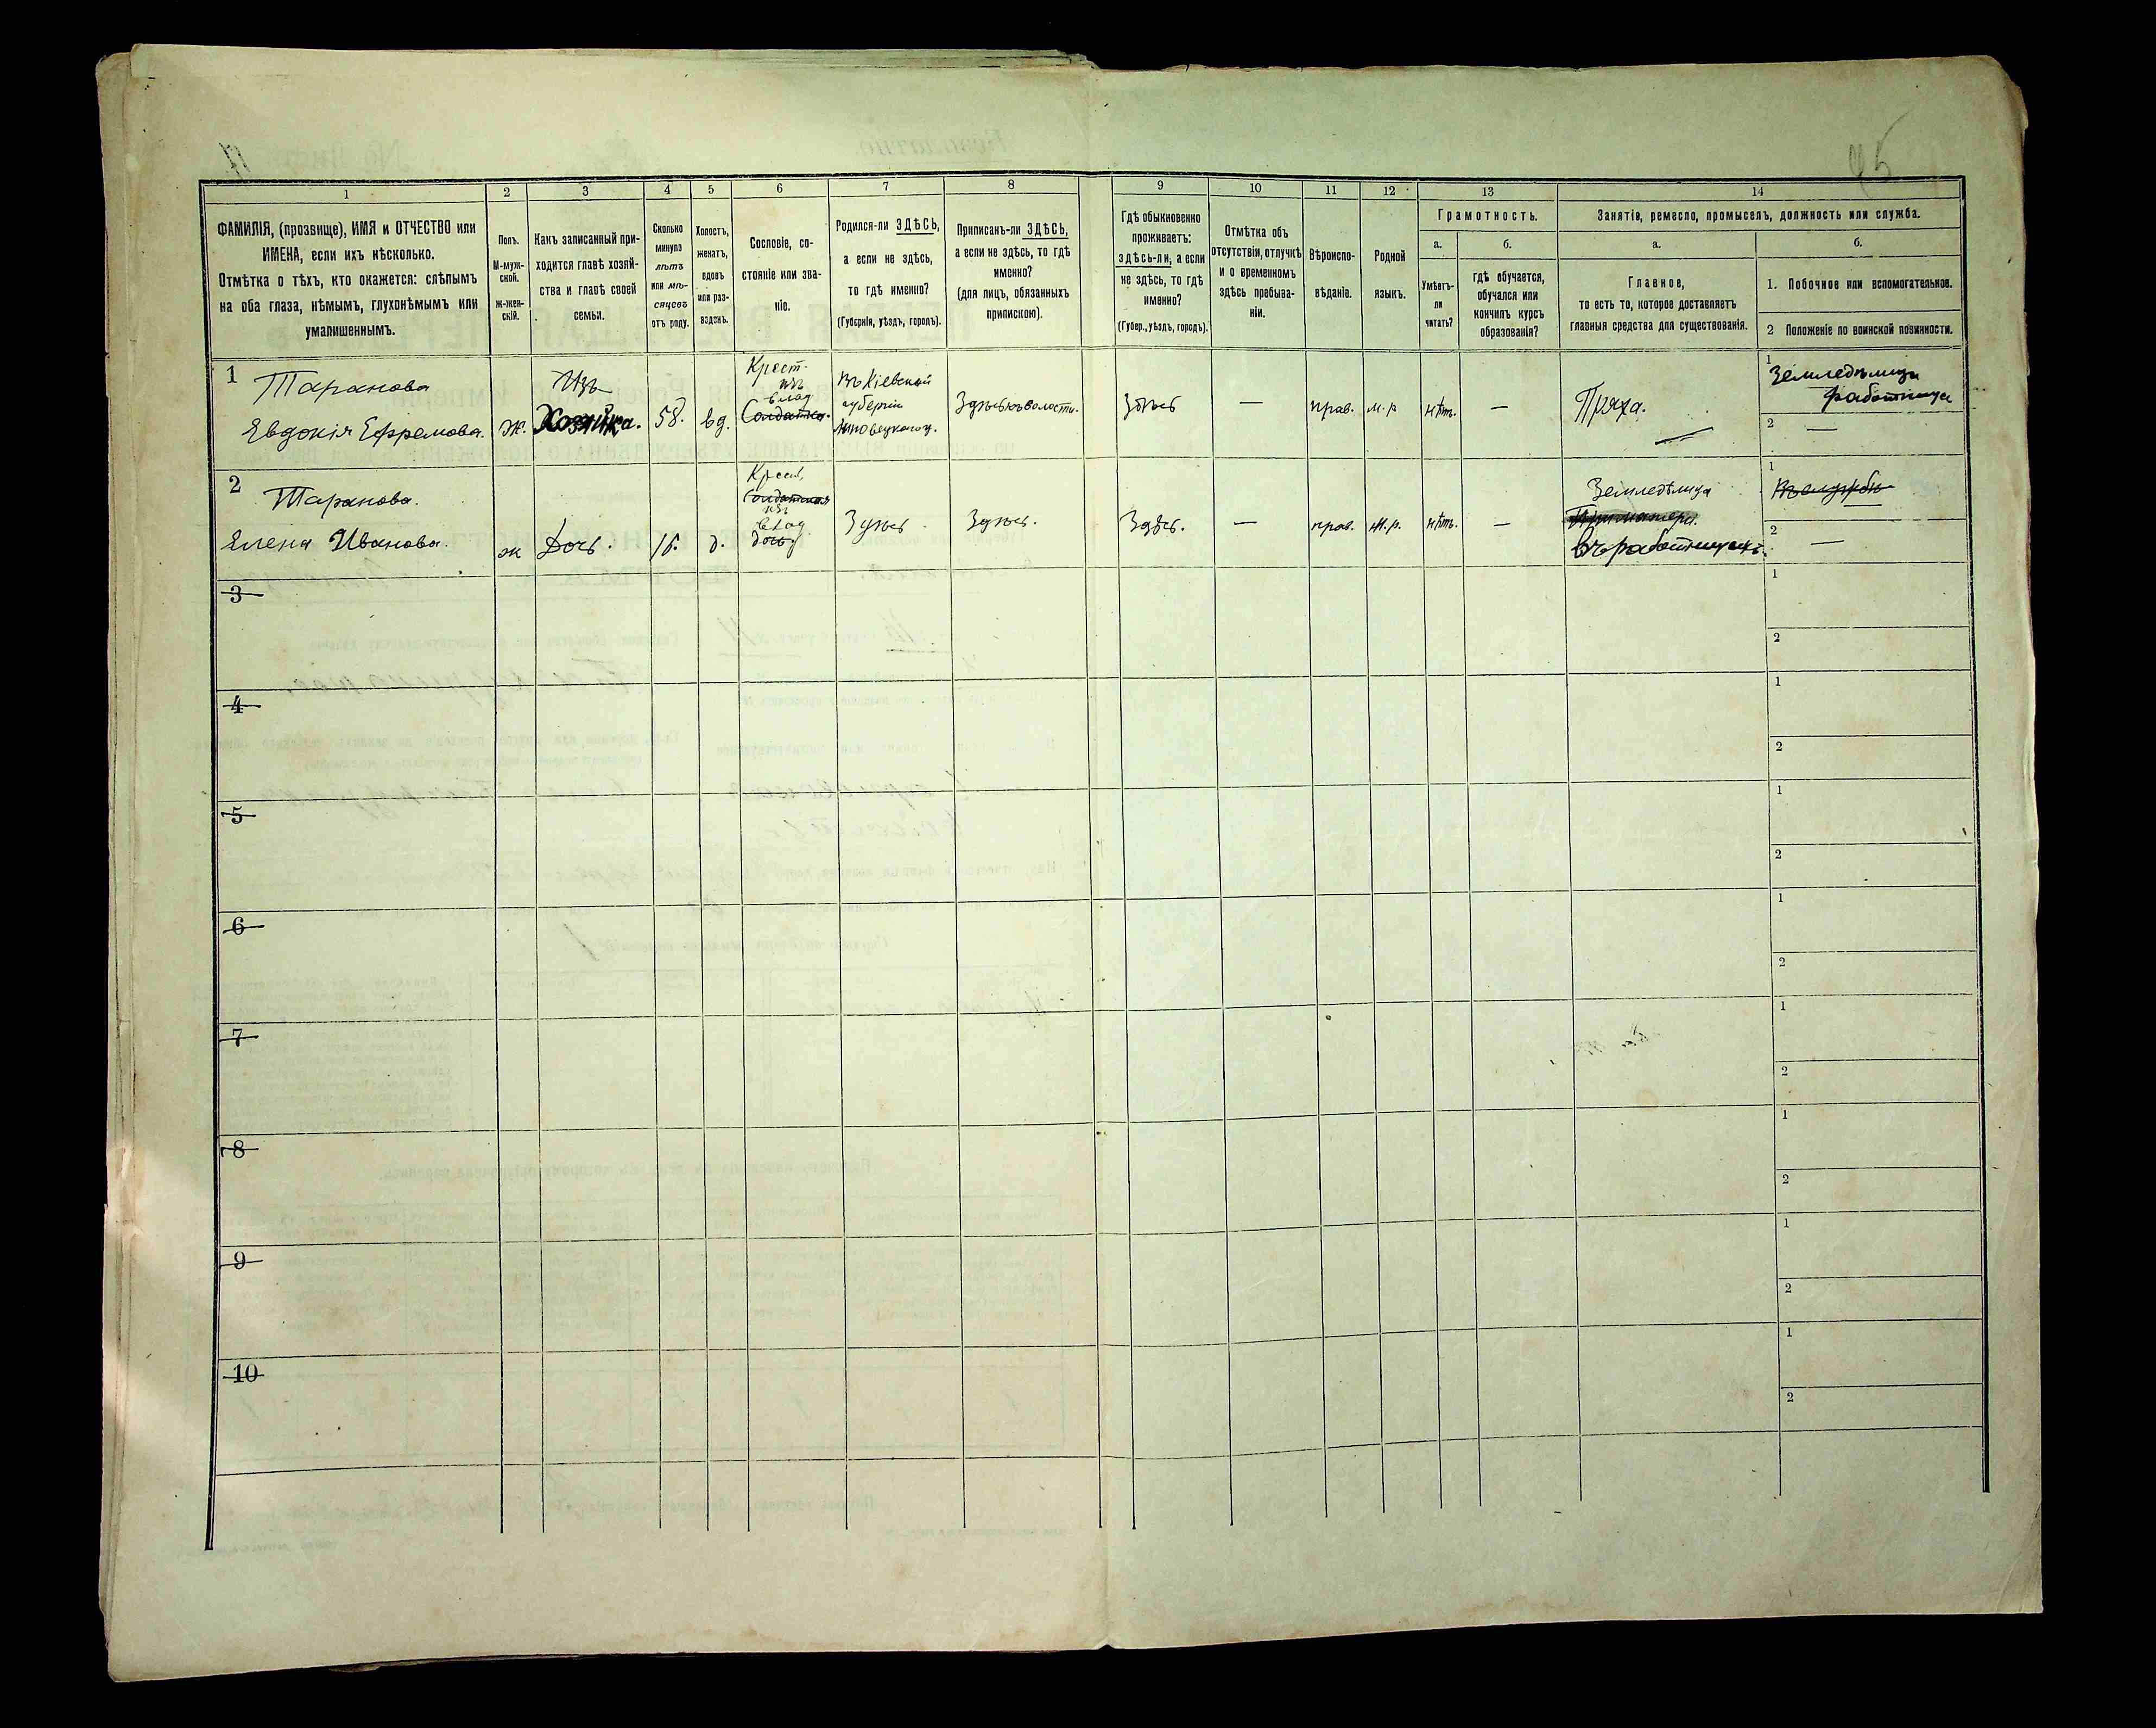 95
1
2
3
4
5
6
7
8
9
10
11
12
13
14
ФАМИЛІЯ, (прозвище), ИМЯ и ОТЧЕСТВО или
ИМЕНА, если ихъ нѣсколько.
Отмѣтка о тѣхъ, кто окажется: слѣпымъ
на оба глаза, нѣмымъ, глухонѣмымъ или
умалишеннымъ.
Полъ.
М-муж-
ской.
ж-жен-
скій.
Какъ записанный при-
ходится главѣ хозяй-
ства и главѣ своей
семьи.
Сколько
минуло
лѣтъ
или мѣ-
сяцевъ
отъ роду.
Холостъ,
женатъ,
вдовъ
или раз-
веденъ.
Сословіе, со-
стояніе или зва-
ніе.
Родился-ли ЗДѢСЬ,
а если не здѣсь,
то гдѣ именно?
(Губернія, уѣздъ, городъ).
Приписанъ-ли ЗДѢСЬ,
а если не здѣсь, то гдѣ
именно?
(для лицъ, обязанныхъ
припискою).
Гдѣ обыкновенно
проживаетъ:
здѣсь-ли, а если
не здѣсь, то гдѣ
именно?
(Губер., уѣздъ, городъ).
Отмѣтка объ
отсутствіи, отлучкѣ
и о временномъ
здѣсь пребыва-
ніи.
Вѣроиспо-
вѣданіе.
Родной
языкъ.
Грамотность.
а.
б.
Умѣетъ-
ли
читать?
гдѣ обучается,
обучался или
кончилъ курсъ
образованія?
Занятія, ремесло, промыселъ, должность или служба.
а.
б.
Главное,
то есть то, которое доставляетъ
главныя средства для существованія.
1. Побочное или вспомогательное.
2 Положеніе по воинской повинности.
1
Таранова
Евдокія Ефремова.
ж.
Хозяйка.
58.
вд.
Крест.
изъ
влад
Солдатка.
въ Кіевской
губерніи
Здѣсь
—
прав.
м.р
нѣтъ.
—
Пряха.
1
Земледѣлица
работница
2
—
2
Таранова.
Елена Иванова.
ж
Дочь.
16.
д.
Крест,
изъ
влад
Здѣсь.
Здѣсь.
Здѣсь.
—
прав.
м.р.
нѣтъ.
—
Земледѣлица
въ работницахъ.
1
2
—
3
1
2
4
1
2
5
1
2
6
1
2
7
1
2
8
1
2
9
1
2
10
1
2